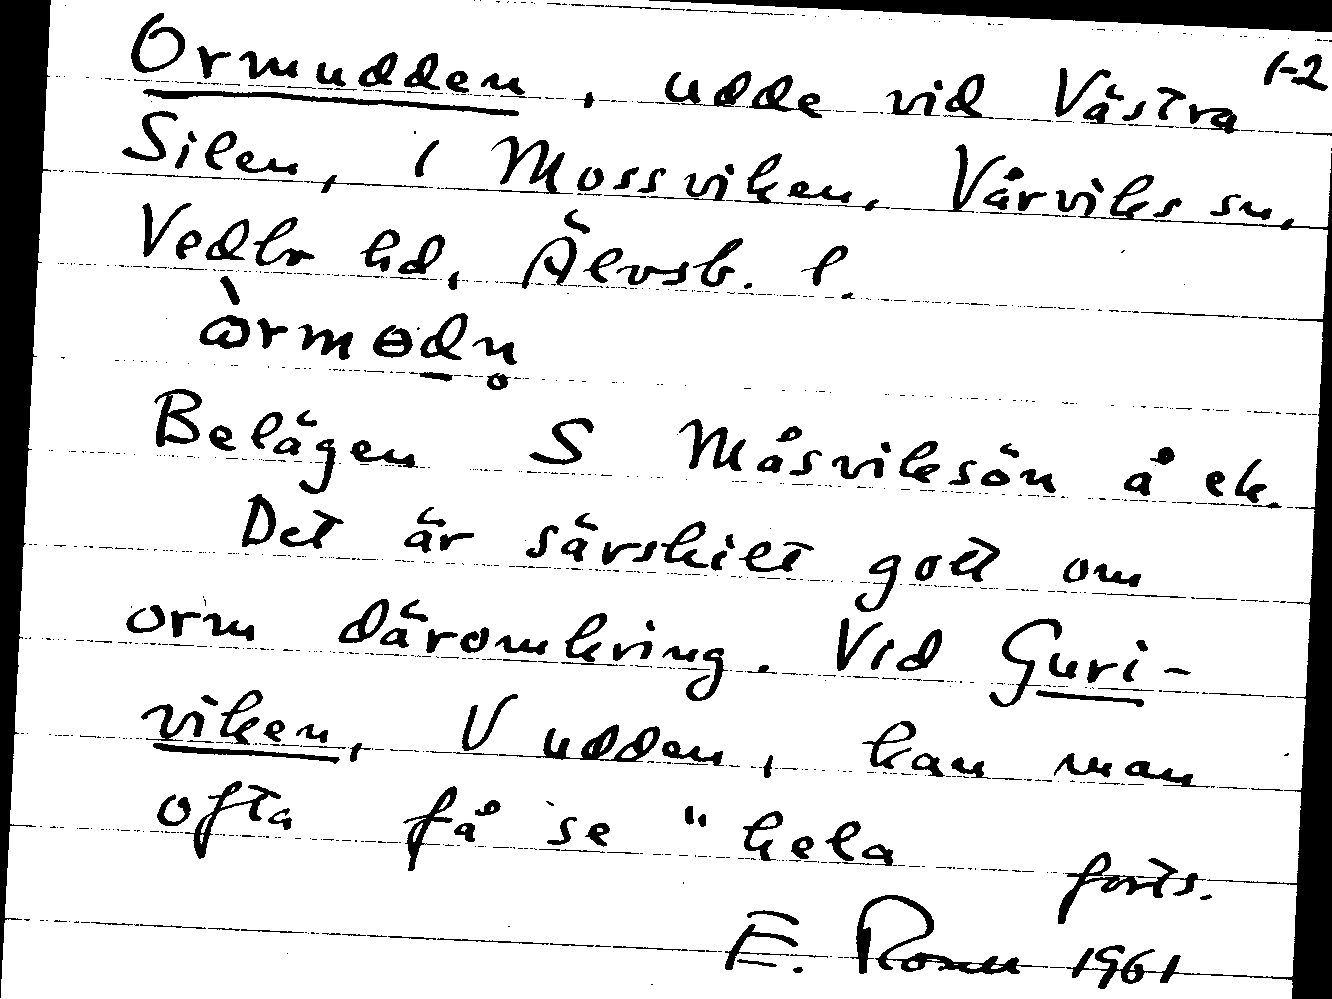 1-2
Ormudden, udde vid Västra
Silen, i Mossviken, Vårviks sn,
Vedbo hd, Älvsb. l.
òrmɵdn̥
Belägen S Måsviksön å ek.
Det är särskilt gott om
orm däromkring. Vid Guri-
viken, V udden, kan man
ofta få se "hela
forts.
E. Rosell 1961